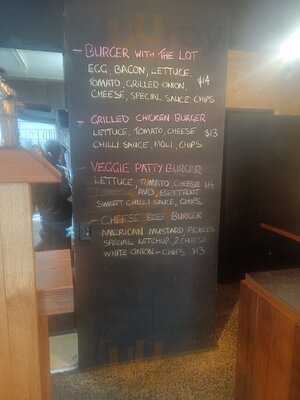 - BURGER WITH THE LOT
EGG, BACON, LETTUCE,
TOMATO, GRILLED ONION, $14
CHEESE, SPECIAL SAUCE, CHIPS
- GRILLED CHICKEN BURGER
LETTUCE, TOMATO, CHEESE $13
CHILLI SAUCE, CHIPS
- VEGGIE PATTY BURGER
LETTUCE, TOMATO, CHEESE
AND BEETROOT
SWEET CHILLI SAUCE, CHIPS
- CHEESE BEEF BURGER
AMERICAN MUSTARD PICKLES
SPECIAL KETCHUP, 2 CHEESE
WHITE ONION - CHIPS $13